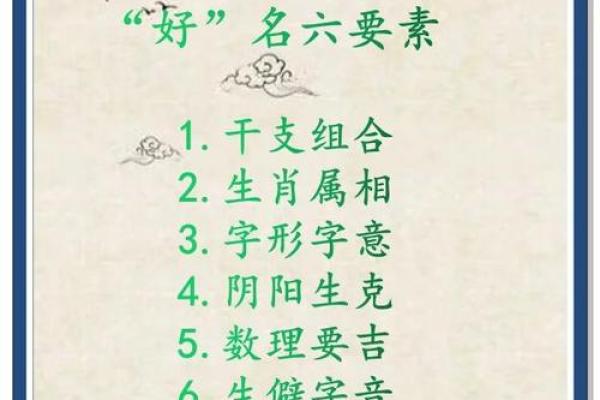 “好”名六要素
1.干支组合
2.生肖属相
3.字形字意
4.阴阳生克
5.数理要吉
6.生僻字音